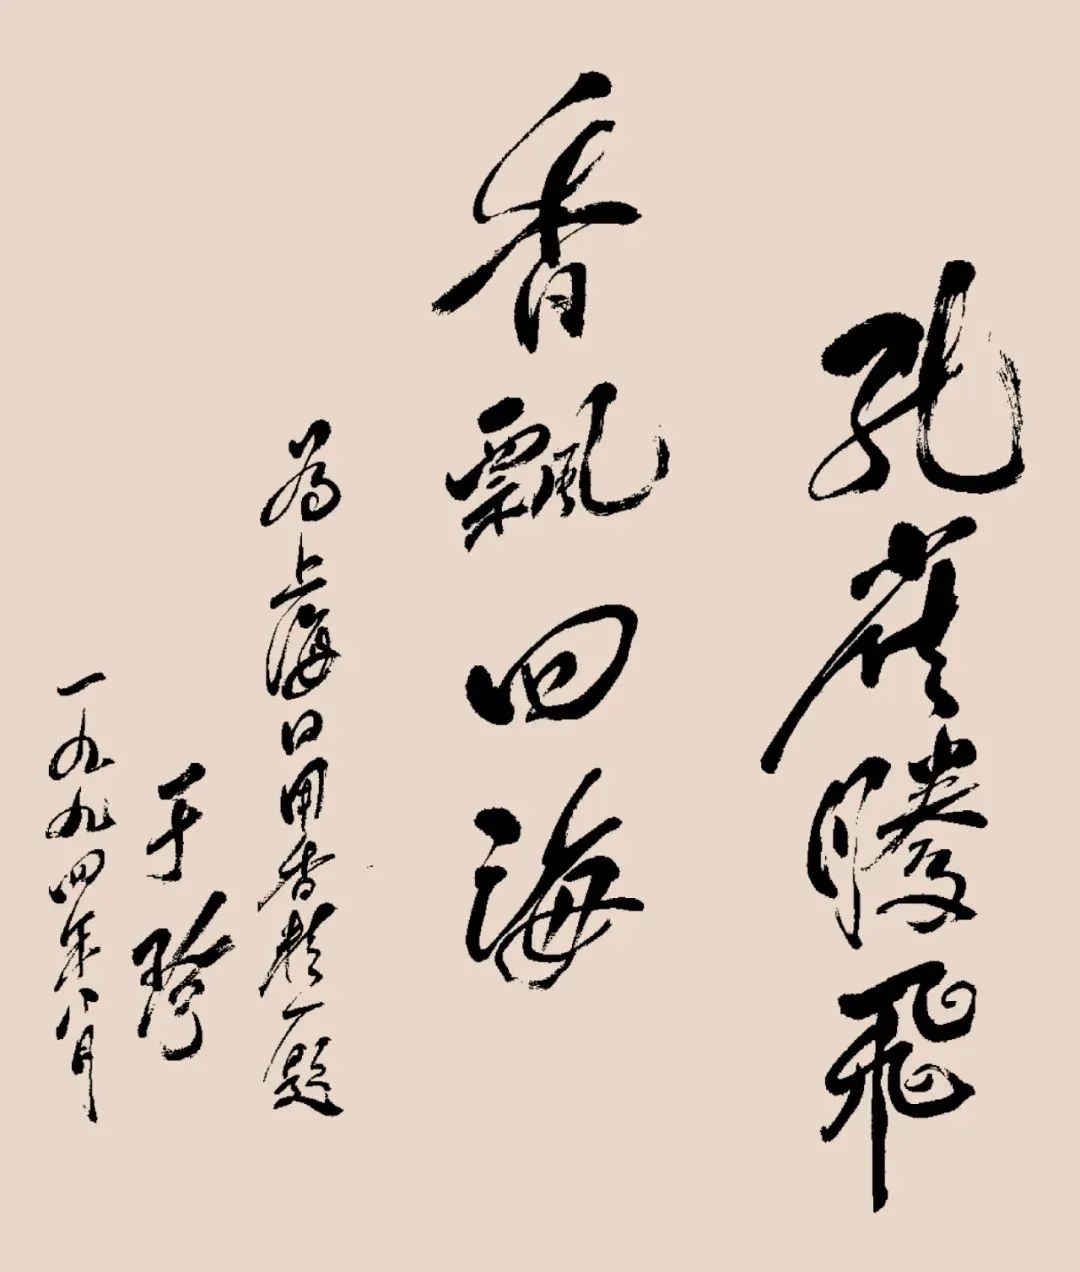 孔雀腾飛
香飄四海
为上海日用香料厂題
于玲
一九九四年八月